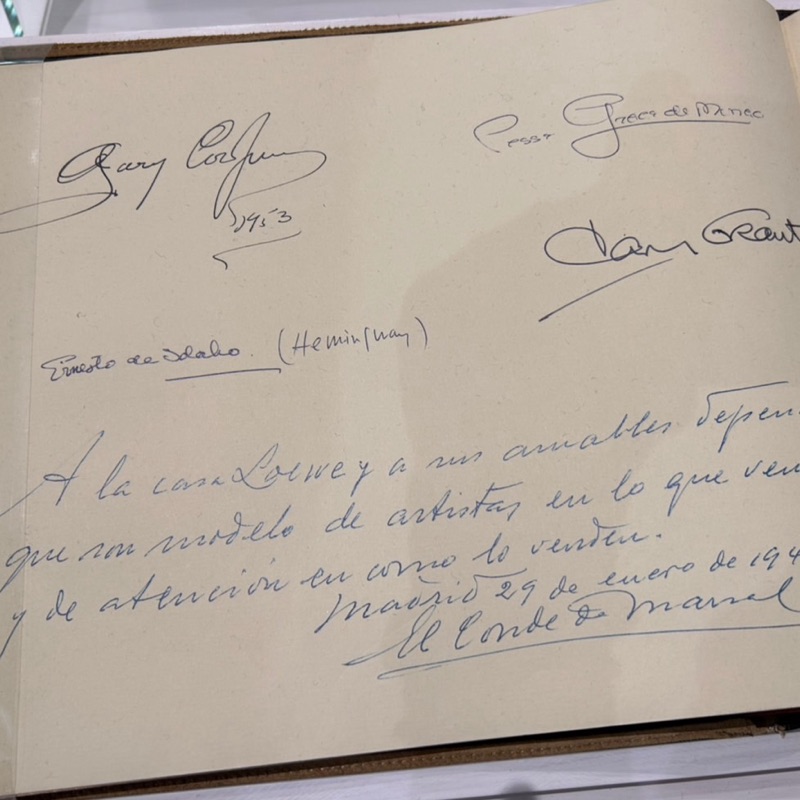 Gary Cooper
1953
Grace de Monaco
Cary Grant
Ernesto de Idaho. (Heminguay)
A la casa Loewe y a sus amables depen
que son modelo de artistas en lo que ven
y de atención en como lo venden.
Madrid 29 de enero de 194
El Conde de